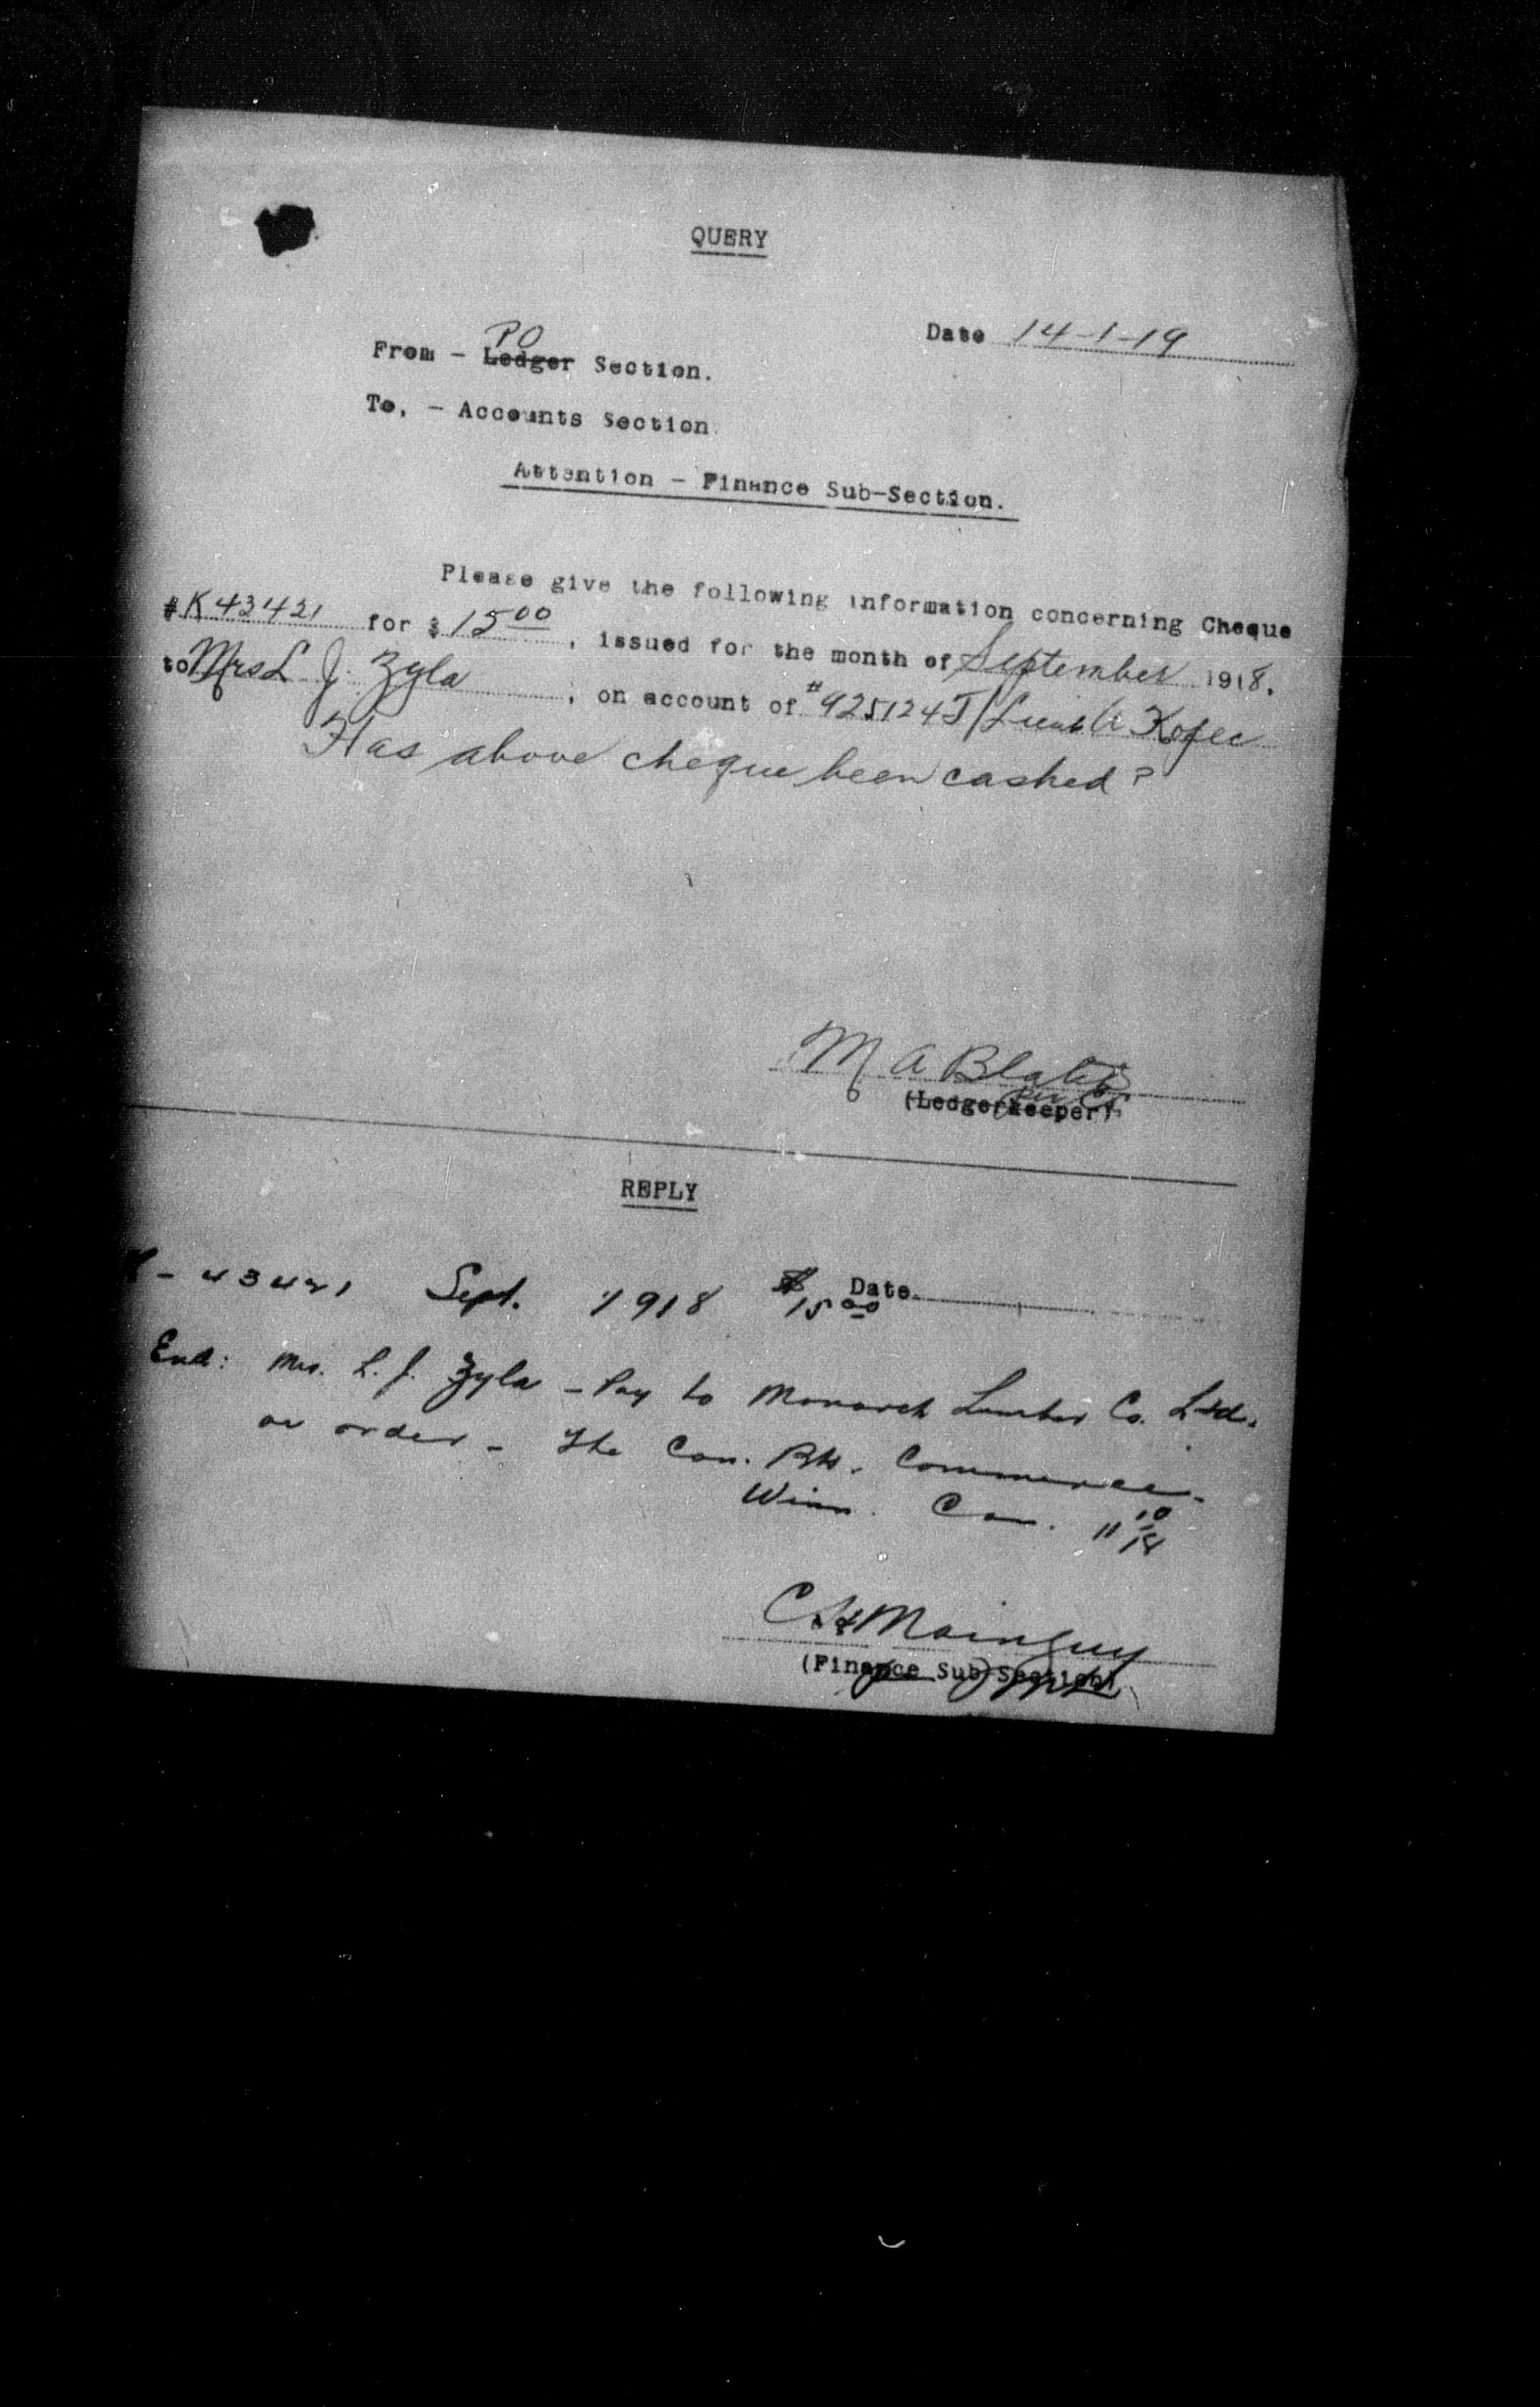 QUERY
Date 14-1-19
PO
From - Ledger Section.
To, - Accounts Section.
Attention - Finance Sub-Section.
Please give the following information concerning Cheque
#K43421 for $ 15 00, issued for the month of September 1918.
to Mrs L. J. Zyla, on account of #925124 T/ A Kogec
Has above cheque been cashed?
M A
(Ledgerkeeper).
REPLY
Date
- 43421 Sept. 1918 $ 15 00
End: Mrs. L. J. Zyla - Pay to Monarch Lumber Co. Ltd.
or order - The Can. Bk. Commerce.
Winn. Can. 11 10/18
C H Mainguy
(Finance Sub-Section)